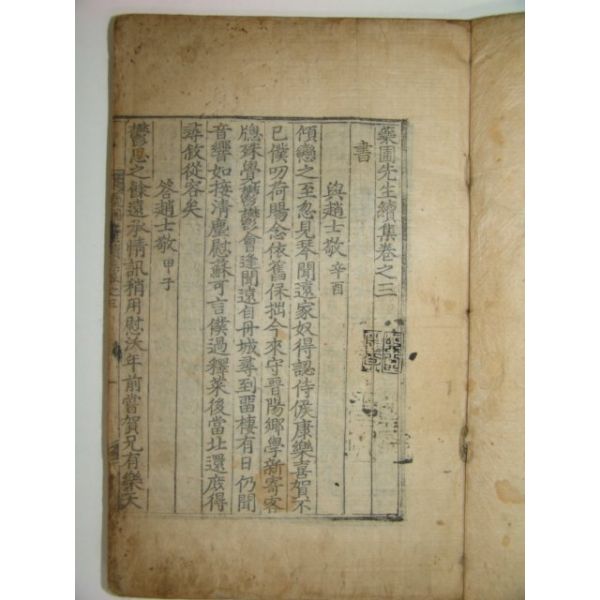 藥圃先生續集卷之三
書
與趙士敬 辛酉
傾戀之至忽見琴聞遠家奴得認侍候康樂喜賀不
已僕叨荷賜念依舊保拙今來守晉陽鄉學新寄客
牕殊覺鬱鬱會逢聞遠自丹城尋到留棲有日仍聞
音響如接清塵慰蘇可言僕過釋菜後當北還庶得
尋敘從容矣
答趙士敬 甲子
鬱思之餘遠承情訊稍用慰沃年前嘗賀兄有樂天